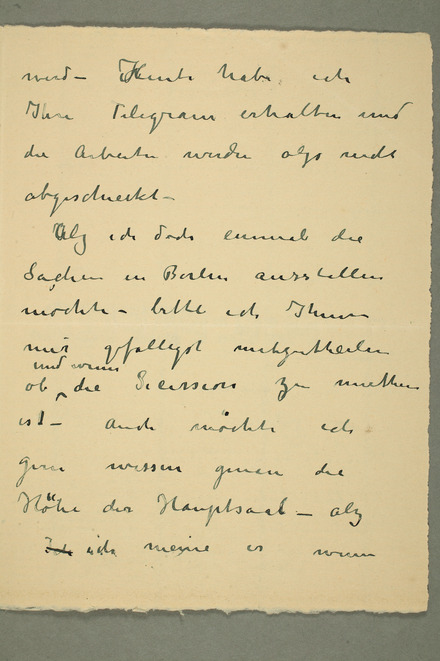 wird – Heute habe ich
Ihre Telegram erhalten und
die Arbeiten werden also nicht
abgeschickt –
Als ich doch einmal die
Sachen in Berlin ausstellen
möchte – bitte ich Ihnen
mir gefälligst mitzutheilen
und wann
ob die Secession zu miethen
ist – Auch möchte ich
gern wissen genau die
Höhe der Hauptsaal – als
ich meine es wenn